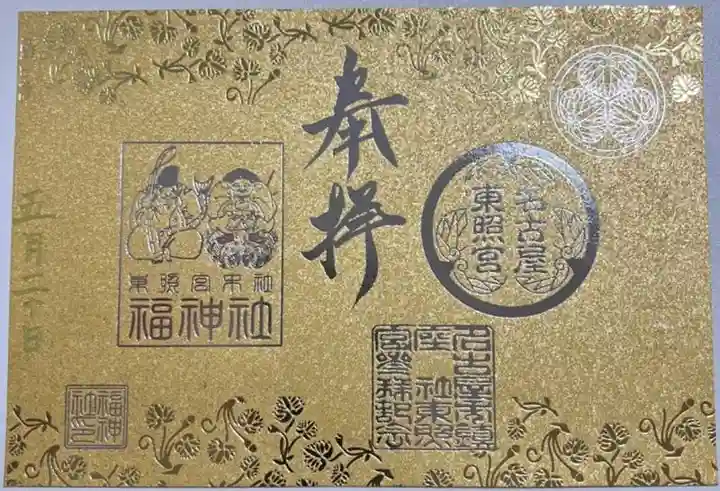 奉拝
名古屋
東照宮
宮参拝記念
東照宮末社
福神社
五月二十日
福神
社印